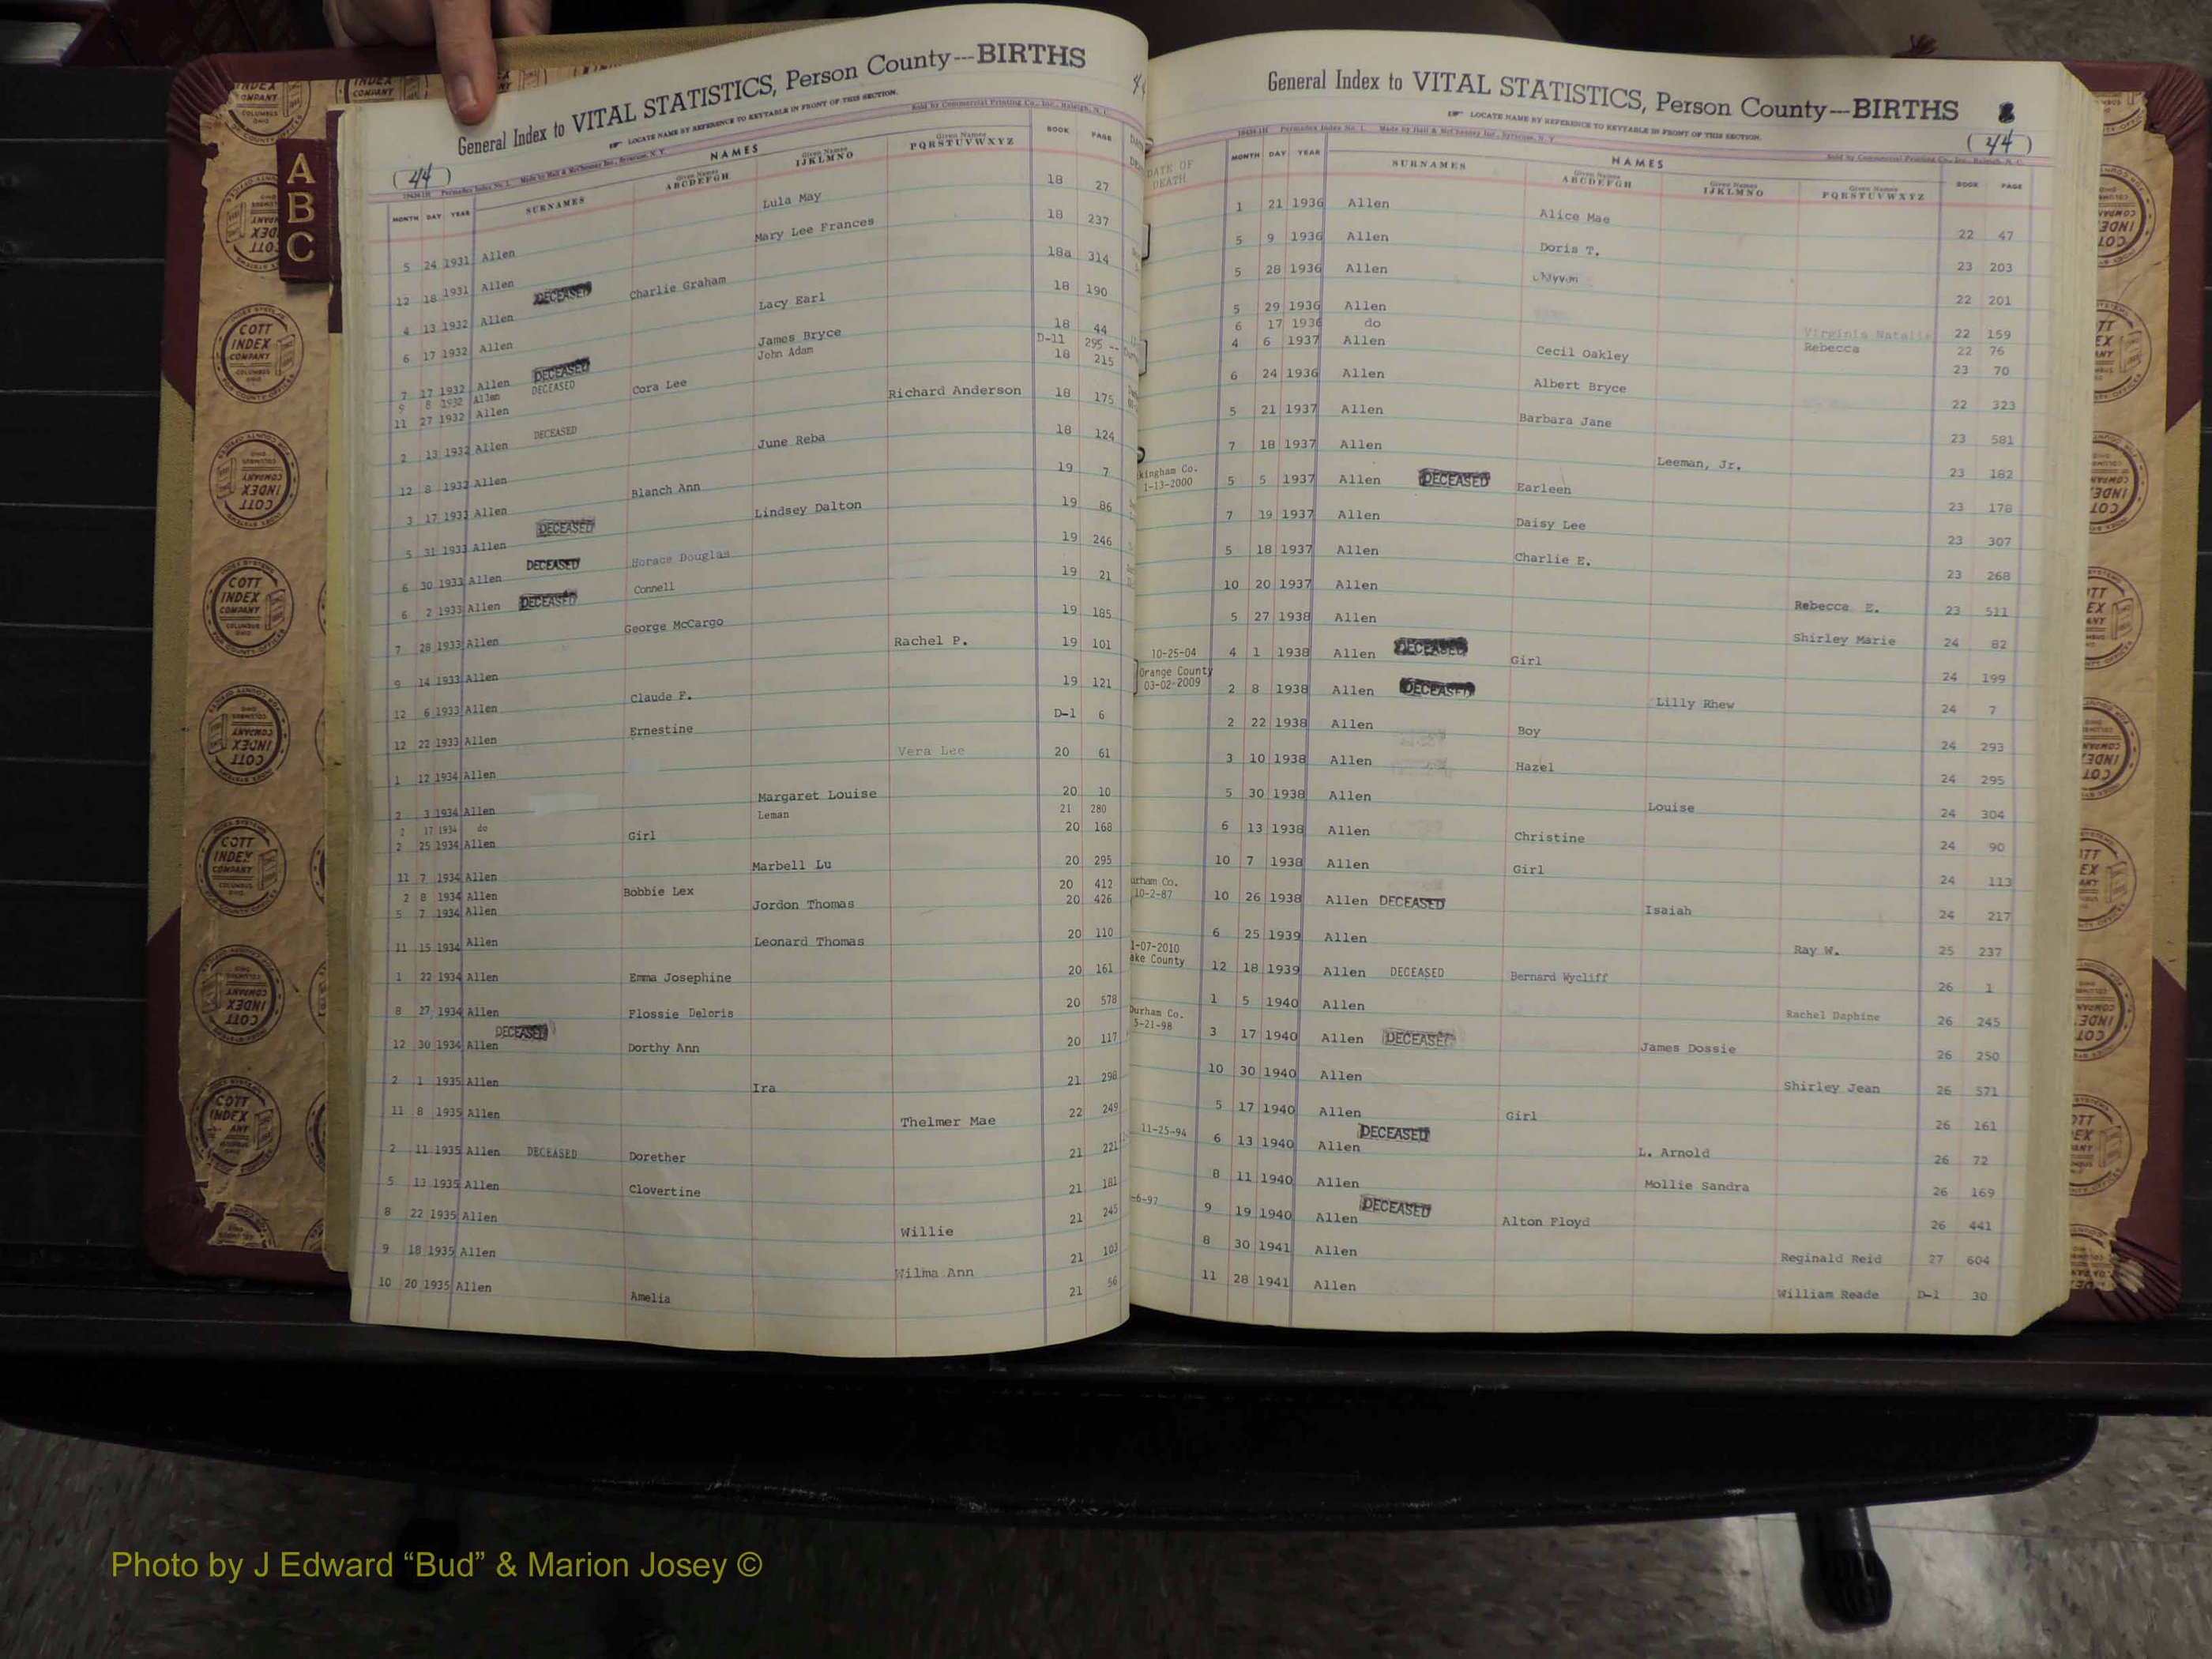 General Index to VITAL STATISTICS, Person County---BIRTHS
LOCATE NAME BY REFERENCE TO KEYTABLE IN FRONT OF THIS SECTION.
(44) Made by Hall & McChesney Inc., Syracuse, N. Y. Sold by Commercial Printing Co., Inc., Raleigh, N. C.
NAMES
MONTH DAY YEAR SURNAMES Given Names ABCDEFGH Given Names IJKLMNO Given Names PQRSTUVWXYZ BOOK PAGE
5 24 1931 Allen Lula May 18 27
12 18 1931 Allen Mary Lee Frances 18 237
4 13 1932 Allen DECEASED Charlie Graham 18a 314
6 17 1932 Allen Lacy Earl 18 190
7 17 1932 Allen DECEASED James Bryce 18 44
9 8 1932 Allen DECEASED John Adam D-11 295
11 27 1932 Allen Cora Lee 18 215
2 13 1932 Allen DECEASED Richard Anderson 18 175
12 8 1932 Allen June Reba 18 124
3 17 1932 Allen Blanch Ann 19 7
5 31 1933 Allen DECEASED Lindsey Dalton 19 86
6 30 1933 Allen DECEASED Horace Douglas 19 246
6 2 1933 Allen DECEASED Connell 19 21
7 28 1933 Allen George McCargo 19 185
9 14 1933 Allen Rachel P. 19 101
12 6 1933 Allen Claude F. 19 121
12 22 1933 Allen Ernestine D-1 6
1 12 1934 Allen Vera Lee 20 61
2 3 1934 Allen Margaret Louise 20 10
2 17 1934 do Leman 21 280
2 25 1934 Allen Girl 20 168
11 7 1934 Allen Marbell Lu 20 295
2 8 1934 Allen Bobbie Lex 20 412
5 7 1934 Allen Jordon Thomas 20 426
11 15 1934 Allen Leonard Thomas 20 110
1 22 1934 Allen Emma Josephine 20 161
8 27 1934 Allen Flossie Deloris 20 578
12 30 1934 Allen DECEASED Dorthy Ann 20 117
2 1 1935 Allen Ira 21 298
11 8 1935 Allen Thelmer Mae 22 249
2 11 1935 Allen DECEASED Dorether 21 221
5 13 1935 Allen Clovertine 21 181
8 22 1935 Allen Willie 21 245
9 18 1935 Allen Wilma Ann 21 103
10 20 1935 Allen Amelia 21 56
General Index to VITAL STATISTICS, Person County---BIRTHS
LOCATE NAME BY REFERENCE TO KEYTABLE IN FRONT OF THIS SECTION.
Made by Hall & McChesney Inc., Syracuse, N. Y. Sold by Commercial Printing Co., Inc., Raleigh, N. C. (44)
NAMES
DATE OF DEATH MONTH DAY YEAR SURNAMES Given Names ABCDEFGH Given Names IJKLMNO Given Names PQRSTUVWXYZ BOOK PAGE
1 21 1936 Allen Alice Mae 22 47
5 9 1936 Allen Doris T. 23 203
5 28 1936 Allen 22 201
5 29 1936 Allen Virginia Natalie 22 159
6 17 1936 do Rebecca 22 76
4 6 1937 Allen Cecil Oakley 23 70
6 24 1936 Allen Albert Bryce 22 323
5 21 1937 Allen Barbara Jane 23 581
7 18 1937 Allen Leeman, Jr. 23 182
kingham Co.
1-13-2000 5 5 1937 Allen DECEASED Earleen 23 178
7 19 1937 Allen Daisy Lee 23 307
5 18 1937 Allen Charlie E. 23 268
10 20 1937 Allen Rebecca E. 23 511
5 27 1938 Allen Shirley Marie 24 82
10-25-04 4 1 1938 Allen DECEASED Girl 24 199
Orange County
03-02-2009 2 8 1938 Allen DECEASED Lilly Rhew 24 7
2 22 1938 Allen Boy 24 293
3 10 1938 Allen Hazel 24 295
5 30 1938 Allen Louise 24 304
6 13 1938 Allen Christine 24 90
10 7 1938 Allen Girl 24 113
urham Co.
10-2-87 10 26 1938 Allen DECEASED Isaiah 24 217
6 25 1939 Allen Ray W. 25 237
1-07-2010
ake County 12 18 1939 Allen DECEASED Bernard Wycliff 26 1
1 5 1940 Allen Rachel Daphine 26 245
Durham Co.
5-21-98 3 17 1940 Allen DECEASED James Dossie 26 250
10 30 1940 Allen Shirley Jean 26 571
5 17 1940 Allen Girl 26 161
11-25-94 6 13 1940 Allen DECEASED L. Arnold 26 72
8 11 1940 Allen Mollie Sandra 26 169
-6-97 9 19 1940 Allen DECEASED Alton Floyd 26 441
8 30 1941 Allen Reginald Reid 27 604
11 28 1941 Allen William Reade D-1 30
A
B
C
COTT INDEX COMPANY COLUMBUS OHIO
Photo by J Edward “Bud” & Marion Josey ©